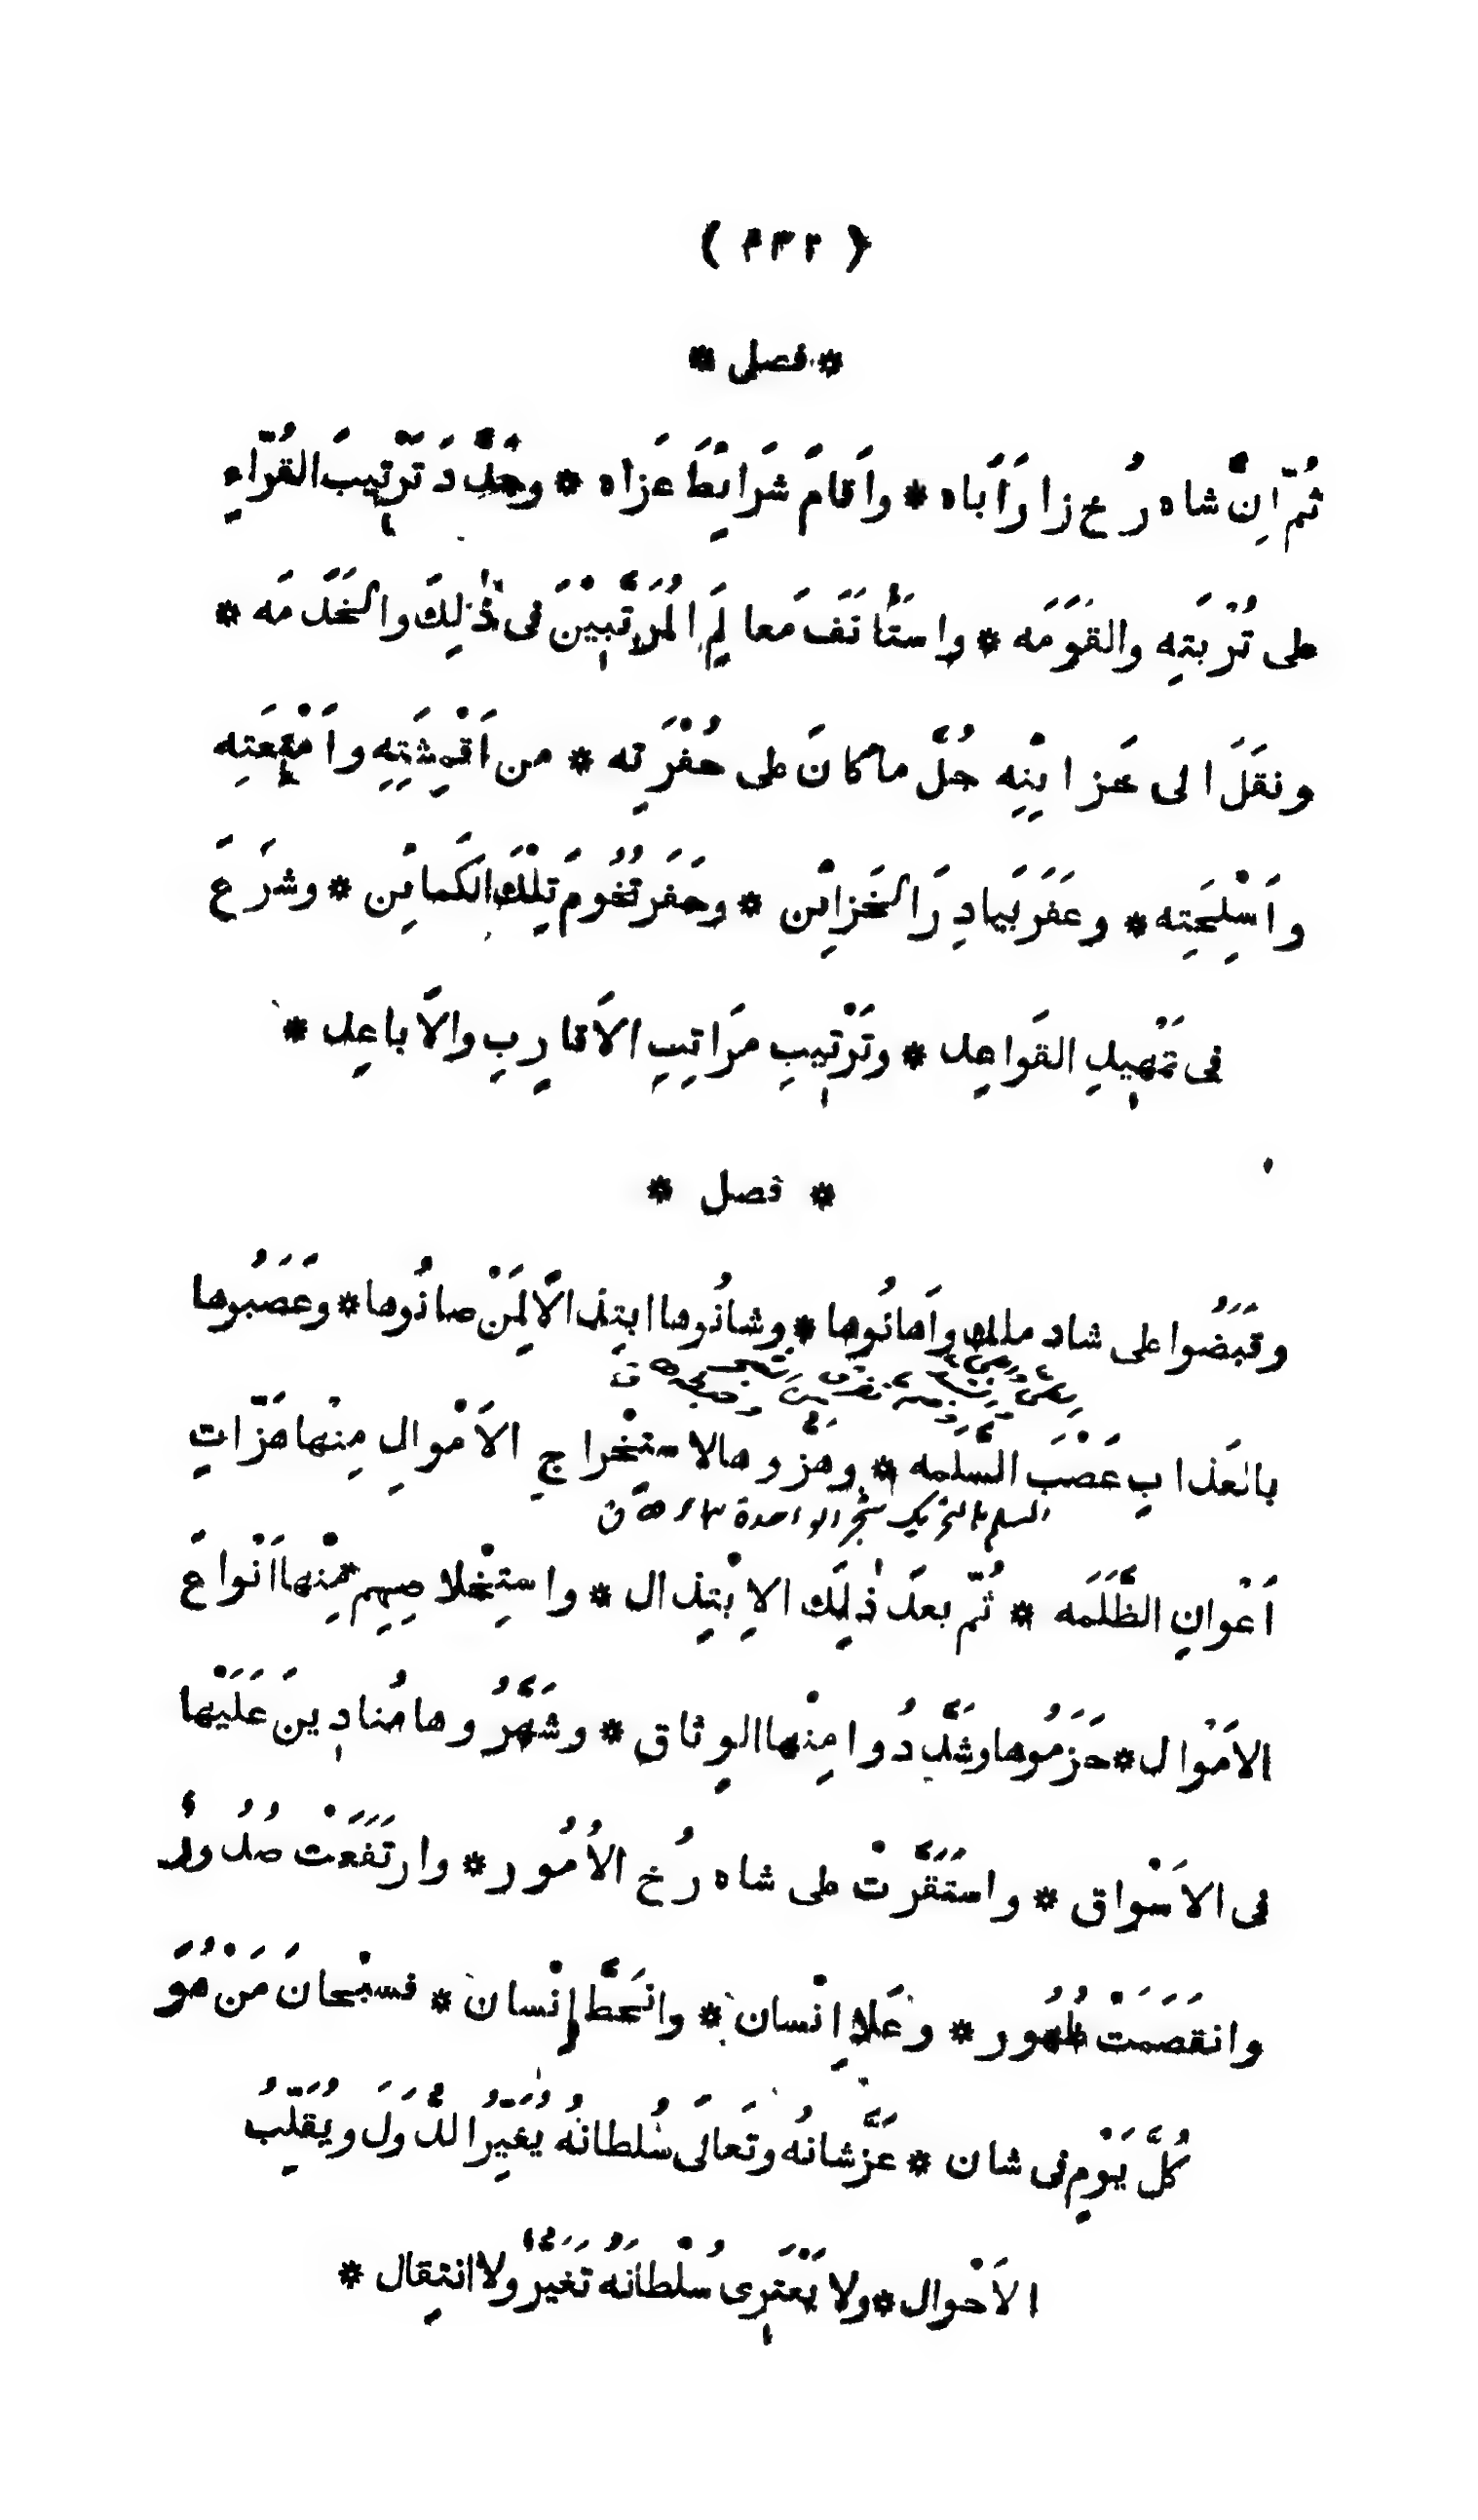 * فصل *
ثُمَّ اِنَّ شاه رُخ زارَ اَباه * واَقامَ شَرَائِطَ عَزاه * وجَدَّدَ تَرْتِيبَ القُرّاءِ
على تُرْبَتِهِ والقَوَمَه * واستَأنَفَ مَعالِمَ المُرَتَّبِيْنَ فى ذٰلِكَ والخَدَمَه *
ونقَلَ الى خَزائِنِه جُلَّ ما كانَ على حُفْرَتِه * من اَقْمِشَتِهِ واَمْتِعَتِه
واَسْلِحَتِه * وعَفَرَ بَيادِرَ الخَزائِن * وحَفَرَ تُخُومَ تِلْكَ الكَمائِن * وشرَعَ
فى تمْهِيدِ القَواعِد * وتَرْتِيبِ مرَاتِبِ الاَقارِبِ والاَباعِد *
* فصل *
وقَبَضُوا على شاد ملك واَهانُوها * وشانُوها ابتِذالاً لِمَنْ صانُوها * وعَصَبُوها
بالعَذابِ عَصْبَ السَّلَمه * وهَزُّوها لاستِخْراجِ الاَمْوالِ مِنْها هَزّاتِ
السلم بالتحريك شجر الواحدة سلمة ق
اَعْوانِ الظَّلَمَه * ثُمّ بعدَ ذٰلِكَ الاِبْتِذال * واستِخْلاصِهِم مِنْها اَنْواعَ
الاَمْوال * حَزَمُوها وشَدَّدُوا مِنْها الوِثاق * وشَهَّرُوها مُنادِينَ عَلَيْها
فى الاَسْواق * واستَقَرَّتْ على شاه رُخ الاُمُور * وارتَفَعَتْ صُدُورٌ
وانقَصَمَتْ ظُهُور * وعَلا اِنْسان * وانحَطَّ اِنْسان * فسبْحانَ مَنْ هُوَ
كُلَّ يَوْمٍ فى شان * عَزَّ شانُهُ وتَعالَى سُلطانُهُ يُغَيِّرُ الدُّوَلَ ويُقَلِّبُ
الاَحْوال * ولا يَعْتَرِى سُلْطانَهُ تَغَيُّرٌ ولا انتِقال *